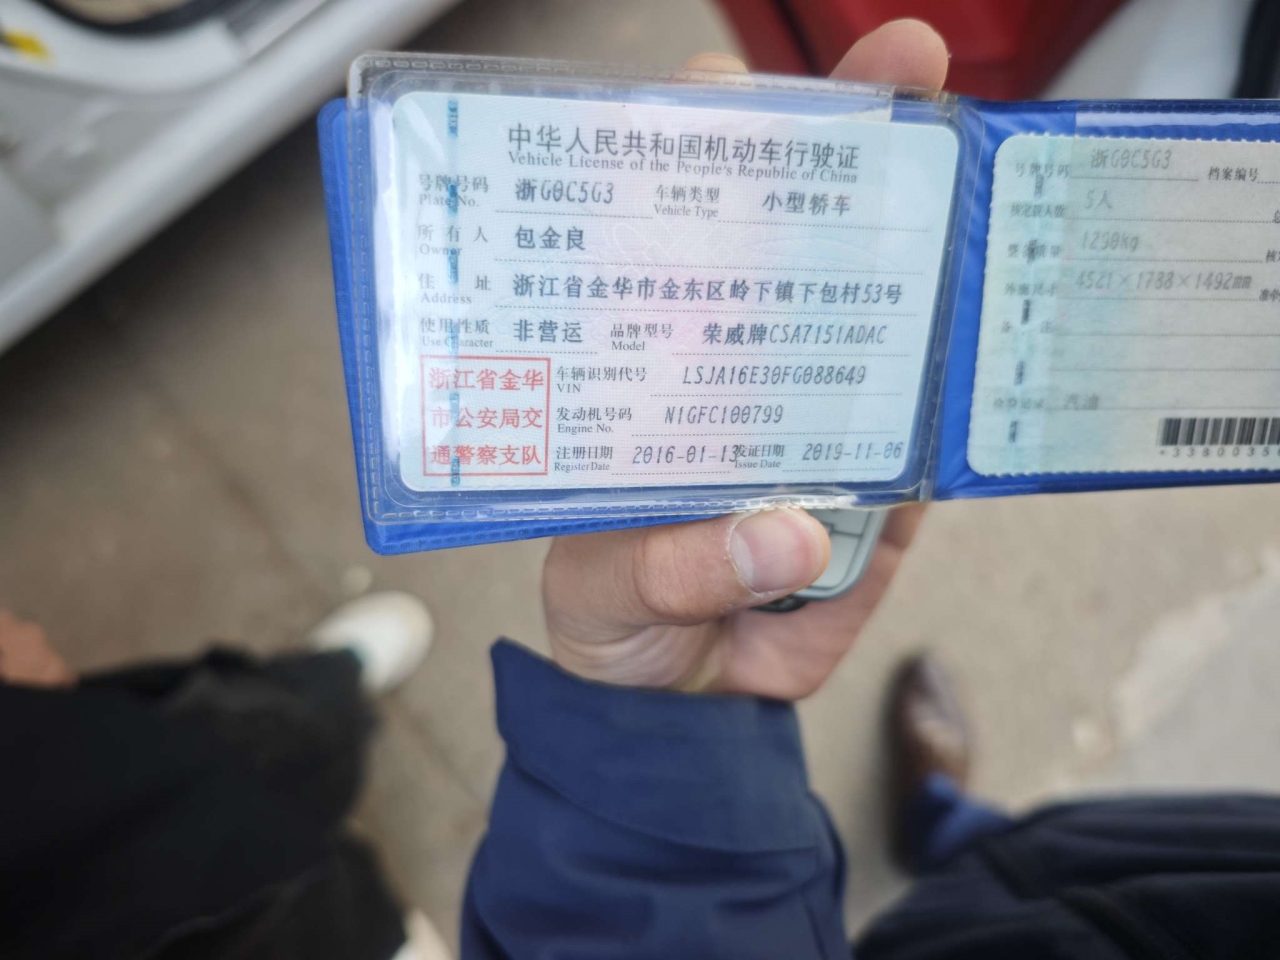 中华人民共和国机动车行驶证
Vehicle License of the People's Republic of China
号牌号码 浙G0C5G3 车辆类型 小型轿车
Plate No. Vehicle Type
所有人 包金良
Owner
住址 浙江省金华市金东区岭下镇下包村53号
Address
使用性质 非营运 品牌型号 荣威牌CSA7151ADAC
Use Character Model
浙江省金华
市公安局交
通警察支队
车辆识别代号 LSJA16E30FG088649
VIN
发动机号码 N1GFC100799
Engine No.
注册日期 2016-01-13 发证日期 2019-11-06
Register Date Issue Date
号牌号码 浙G0C5G3 档案编号
核定载人数 5人
整备质量 1290kg
外廓尺寸 4521×1788×1492mm
备注
检验记录 汽油